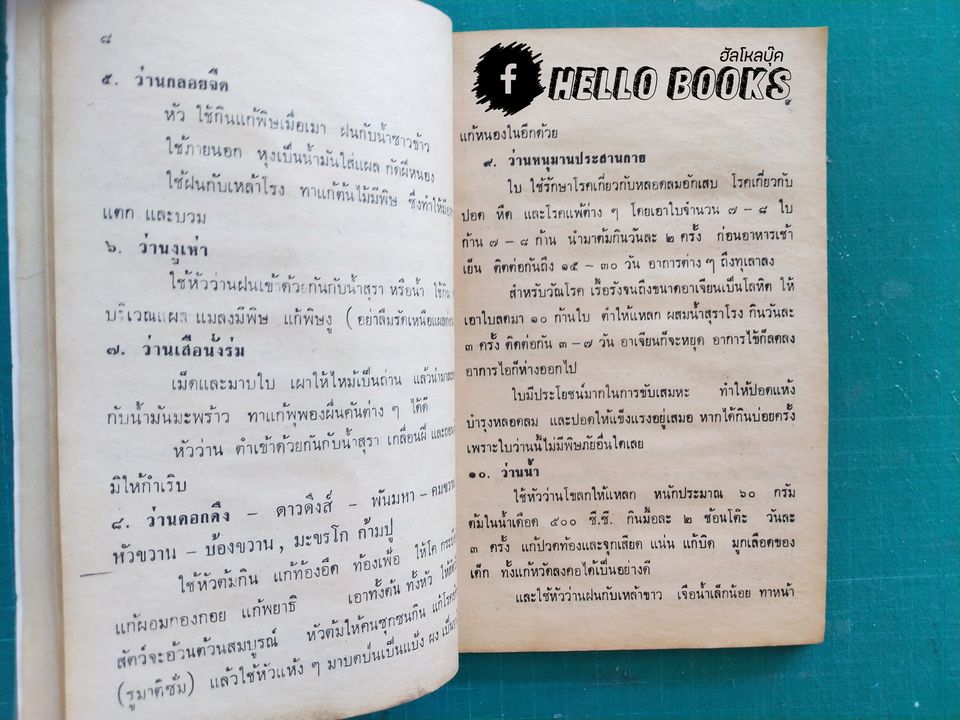 ๘
๕. ว่านกลอยจืด
หัว ใช้กินแก้พิษเมื่อเมา ฝนกับน้ำซาวข้าว
ใช้ภายนอก หุงเป็นน้ำมันใส่แผล กัดฝีหนอง
ใช้ฝนกับเหล้าโรง ทาแก้ต้นไม้มีพิษ ซึ่งทำให้
แตก และบวม
๖. ว่านงูเห่า
ใช้หัวว่านฝนเข้าด้วยกันกับน้ำสุรา หรือน้ำ ใช้กิน
บริเวณแผล แมลงมีพิษ แก้พิษงู (อย่าลืมรัดเหนือแผล
๗. ว่านเสือนั่งร่ม
เม็ดและมาบใบ เผาให้ไหม้เป็นถ่าน แล้วนำมา
กับน้ำมันมะพร้าว ทาแก้พุพองผื่นคันต่าง ๆ ได้ดี
หัวว่าน ตำเข้าด้วยกันกับน้ำสุรา เกลื่อนฝี และ
มิให้กำเริบ
๘. ว่านดอกดึง – ดาวดึงส์ – พันมหา – คมขวาน
หัวขวาน – บ้องขวาน, มะขรโก ก้ามปู
ใช้หัวต้มกิน แก้ท้องอืด ท้องเฟ้อ ให้โค กระบือ
แก้ผอมกองกอย แก้พยาธิ เอาทั้งต้น ทั้งหัว ให้
สัตว์จะอ้วนต้วนสมบูรณ์ หัวต้มให้คนซูกซนกิน แก้โรค
(รูมาติซั่ม) แล้วใช้หัวแห้ง ๆ มาบดป่นเป็นแป้ง ผง
ฮัลโหลบุ๊ค
f HELLO BOOKS
๙
แก้หนองในอีกด้วย
๙. ว่านหนุมานประสานกาย
ใบ ใช้รักษาโรคเกี่ยวกับหลอดลมอักเสบ โรคเกี่ยวกับ
ปอด หืด และโรคแพ้ต่าง ๆ โดยเอาใบจำนวน ๗ – ๘ ใบ
ก้าน ๗ – ๘ ก้าน นำมาต้มกินวันละ ๒ ครั้ง ก่อนอาหารเช้า
เย็น ติดต่อกันถึง ๑๕ – ๓๐ วัน อาการต่าง ๆ ถึงทุเลาลง
สำหรับวัณโรค เรื้อรังจนถึงขนาดอาเจียนเป็นโลหิต ให้
เอาใบสดมา ๑๐ ก้านใบ ตำให้แหลก ผสมน้ำสุราโรง กินวันละ
๓ ครั้ง ติดต่อกัน ๓ – ๗ วัน อาเจียนก็จะหยุด อาการไข้ก็ลดลง
อาการไอก็ห่างออกไป
ใบมีประโยชน์มากในการขับเสมหะ ทำให้ปอดแห้ง
บำรุงหลอดลม และปอดให้แข็งแรงอยู่เสมอ หากได้กินบ่อยครั้ง
เพราะใบว่านนี้ไม่มีพิษภัยอื่นใดเลย
๑๐. ว่านน้ำ
ใช้หัวว่านโขลกให้แหลก หนักประมาณ ๖๐ กรัม
ต้มในน้ำเดือด ๕๐๐ ซี.ซี. กินมื้อละ ๒ ช้อนโต๊ะ วันละ
๓ ครั้ง แก้ปวดท้องและจุกเสียด แน่น แก้บิด มูกเลือดของ
เด็ก ทั้งแก้หวัดลงคอได้เป็นอย่างดี
และใช้หัวว่านฝนกับเหล้าขาว เจือน้ำเล็กน้อย ทาหน้า